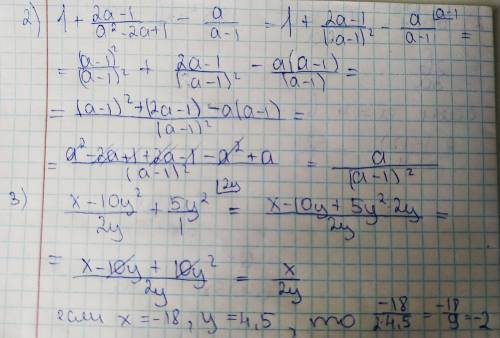 2) 1 + \frac{2a-1}{a^2-2a+1} - \frac{a}{a-1} = 1 + \frac{2a-1}{(a-1)^2} - \frac{a}{a-1}^{|a-1} =
= \frac{(a-1)^2}{(a-1)^2} + \frac{2a-1}{(a-1)^2} - \frac{a(a-1)}{(a-1)} =
= \frac{(a-1)^2+(2a-1)-a(a-1)}{(a-1)^2} =
= \frac{a^2-2a+1+2a-1-a^2+a}{(a-1)^2} = \frac{a}{(a-1)^2}
3) \frac{x-10y^2}{2y} + \frac{5y^2}{1}^{|2y} = \frac{x-10y+5y^2·2y}{2y} =
= \frac{x-10y+10y^2}{2y} = \frac{x}{2y}
если x = -18, y = 4,5, то \frac{-18}{2·4,5} = \frac{-18}{9} = -2